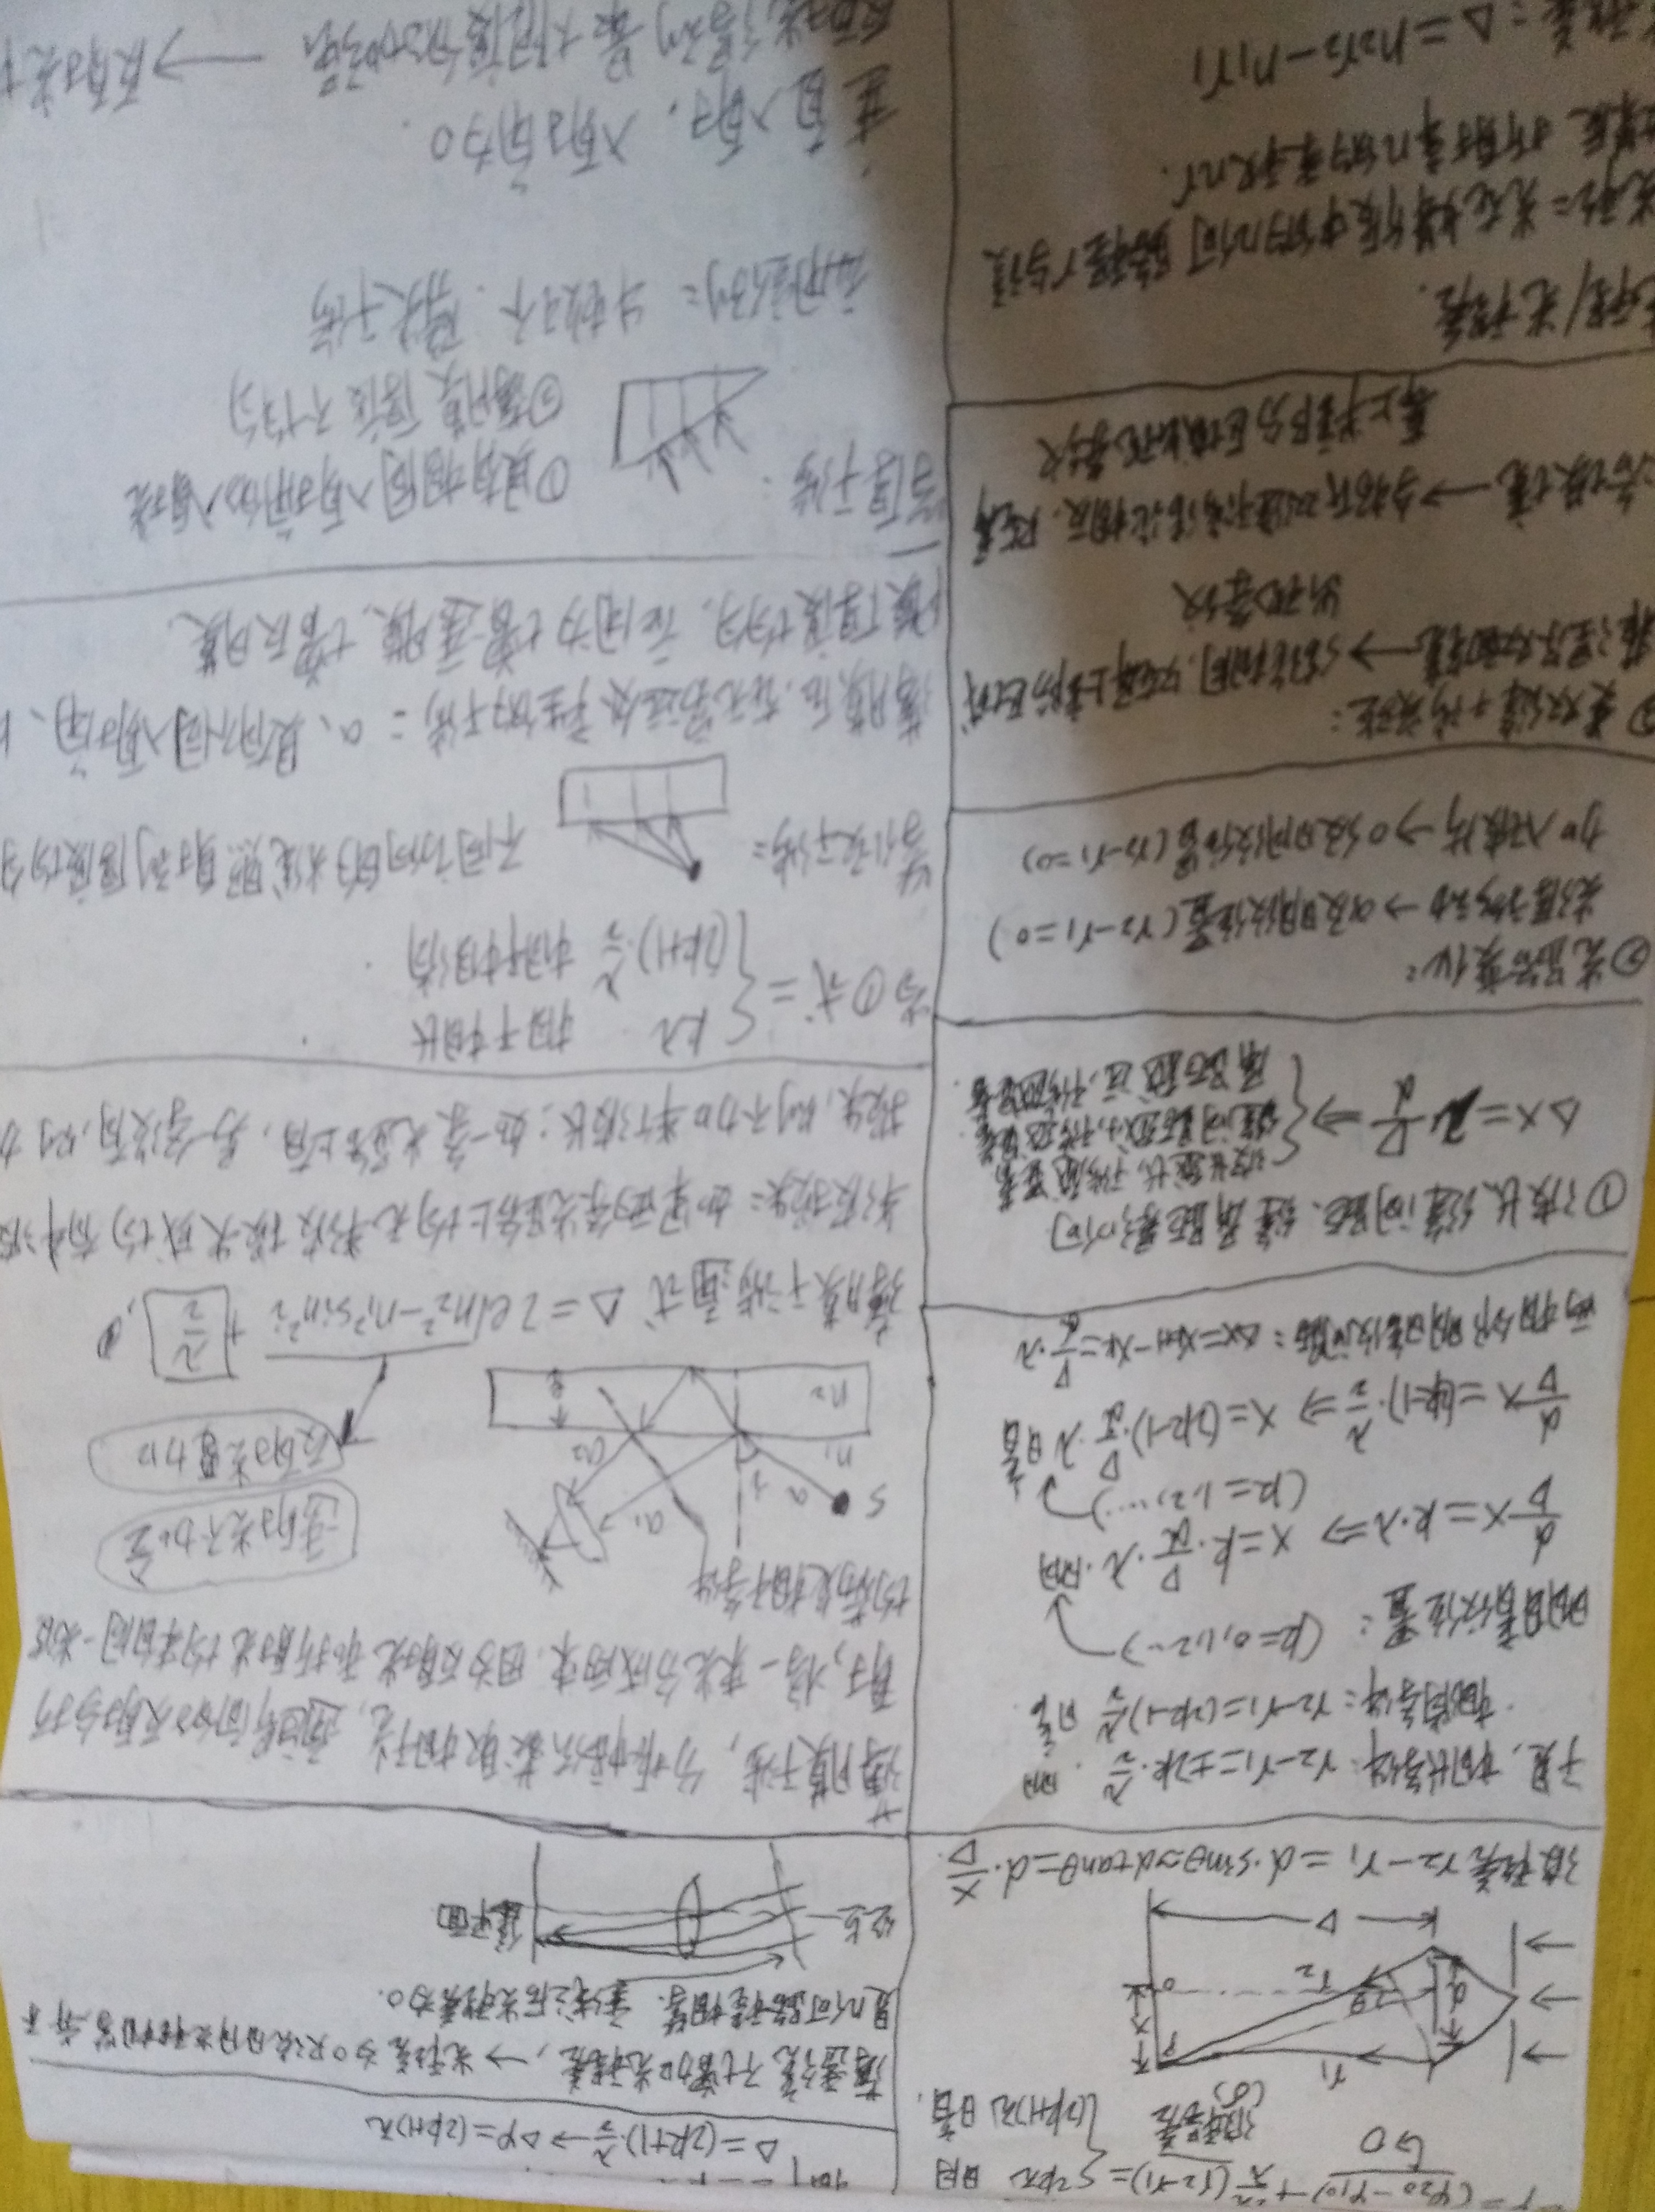 φ=(φ20-φ10)+2π/λ(r2-r1)={2kπ 明
↳0 波程差(δ) (2k+1)π 暗.
r1
P
x
d
θ
r2
0
D
波程差r2-r1=d·sinθ≈dtanθ=d·x/D.
于是,相长条件:r2-r1=±2k·λ/2.明
相消条件:r2-r1=(2k-1)λ/2 暗.
明暗纹位置:(k=0,1,2…)
d/D x=k·λ⇒ x=k·D/d·λ·明
(k=1,2,…)
d/D x=(2k-1)·λ/2⇒ x=(2k-1)·D/d·λ暗
两相邻明暗纹间距:Δx=xk+1-xk=D/d·λ
①波长、缝间距、缝屏距影响
Δx=λD/d⇒{波长越长,干涉越显著
缝间距越小,干涉越显著.
屏距越远,干涉越显著.
②光路变化:
光源移动→0级明纹位置(r2-r1=0)
加入玻片→0级明纹位置(r2-r1=0)
③类双缝干涉实验:
菲涅尔双面镜→结论相同,只在屏上部分区域
出现条纹
洛埃镜→与杨氏双缝干涉结论相反.只在屏
幕上半部分区域出现条纹
光程/光程差.
光程=光在媒质中的几何路程r与该
媒质折射率n的乘积nr.
光程差:Δ=n2r2-n1r1
Δ=(2k+1)·λ/2→Δφ=(2k+1)π
薄透镜不增加光程差,→光程差为0只说明光程相等,并不
是几何路程相等.垂线之后光程差为0.
焦平面
薄膜干涉,分振幅法获取相干光,通过界面的反射与折
射,将一束光分成两束.因为反射光和折射光均来自同一光波
均满足相干条件
S a i a1
n1 a2
n2 e
透射光不加
反射光要加
薄膜干涉通式 Δ=2e√n2²-n1²sin²i+λ/2,①
半波损失:如果两条光路上均无半波损失或均有半波
损失,则不加半个波长;如一条光路上有,另一条没有,则加
当①式={kλ 相干相长
(2k+1)·λ/2 相干相消.
等倾干涉: 不同方向的光线照射到厚度均匀
薄膜后,在无穷远处产生的干涉:a、具有不同入射角、b
膜厚度均匀.应用为增透膜,增反膜.
等厚干涉: ①具有相同入射角的入射光
②薄膜厚度不均匀
应用实例:牛顿环、劈尖干涉
垂直入射,入射角为0.
反射光得到最大限度的加强 →反射光